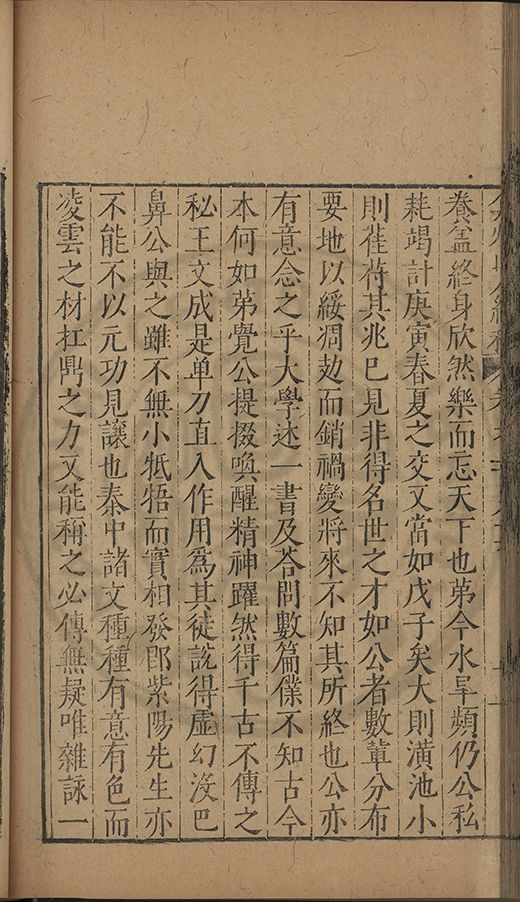 飬盆終身欣然樂而忘天下也弟今水旱頻仍公私
耗竭計庚寅春夏之交又當如戊子矣大則潢池小
則萑苻其兆已見非得名世之才如公者數輩分布
要地以綏凋攰而銷禍變將來不知其所終也公亦
有意念之乎大學述一書及荅問數篇僕不知古今
本何如弟覺公提掇喚醒精神躍然得千古不傳之
秘王文成是单刀直入作用爲其徒說得虛幻沒巴
鼻公與之雖不無小牴牾而實相發卽紫陽先生亦
不能不以元功見讓也秦中諸文種種有意有色而
凌雲之材杠鼎之力又能稱之必傳無疑唯雜詠一